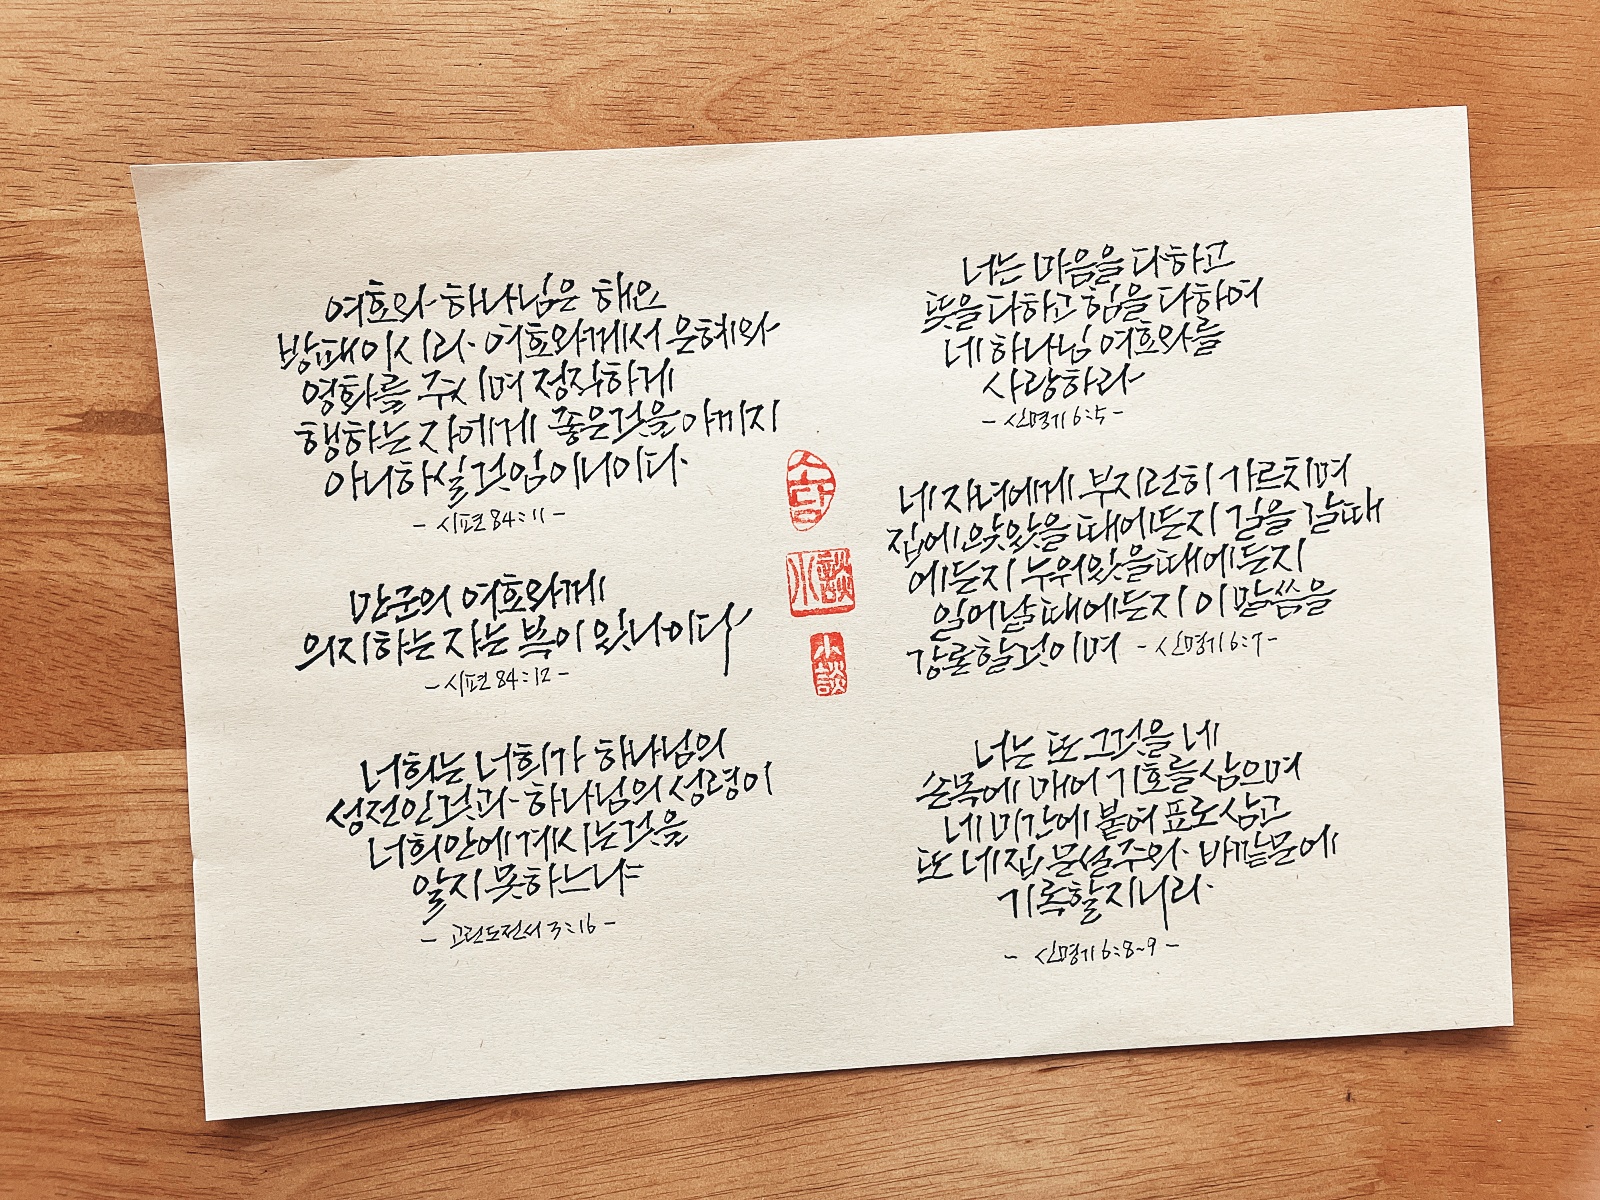 여호와 하나님은 해요
방패이시라. 여호와께서 은혜와
영화를 주시며 정직하게
행하는 자에게 좋은것을 아끼지
아니하실것임이니이다.
- 시편 84:11 -
만군의 여호와께
의지하는 자는 복이 있나이다
- 시편 84:12 -
너희는 너희가 하나님의
성전인것과 하나님의 성령이
너희안에 계시는것을
알지 못하느냐
- 고린도전서 3:16 -
소담
小談
小談
너는 마음을 다하고
뜻을 다하고 힘을 다하여
네 하나님 여호와를
사랑하라
- 신명기 6:5 -
네 자녀에게 부지런히 가르치며
집에 앉았을 때에든지 길을 갈때
에든지 누워있을때에든지
일어날때에든지 이 말씀을
강론할것이며 - 신명기 6:7 -
너는 또 그것을 네
손목에 매어 기호를 삼으며
네 미간에 붙여 표로 삼고
또 네 집 문설주와 바깥문에
기록할지니라.
- 신명기 6:8~9 -